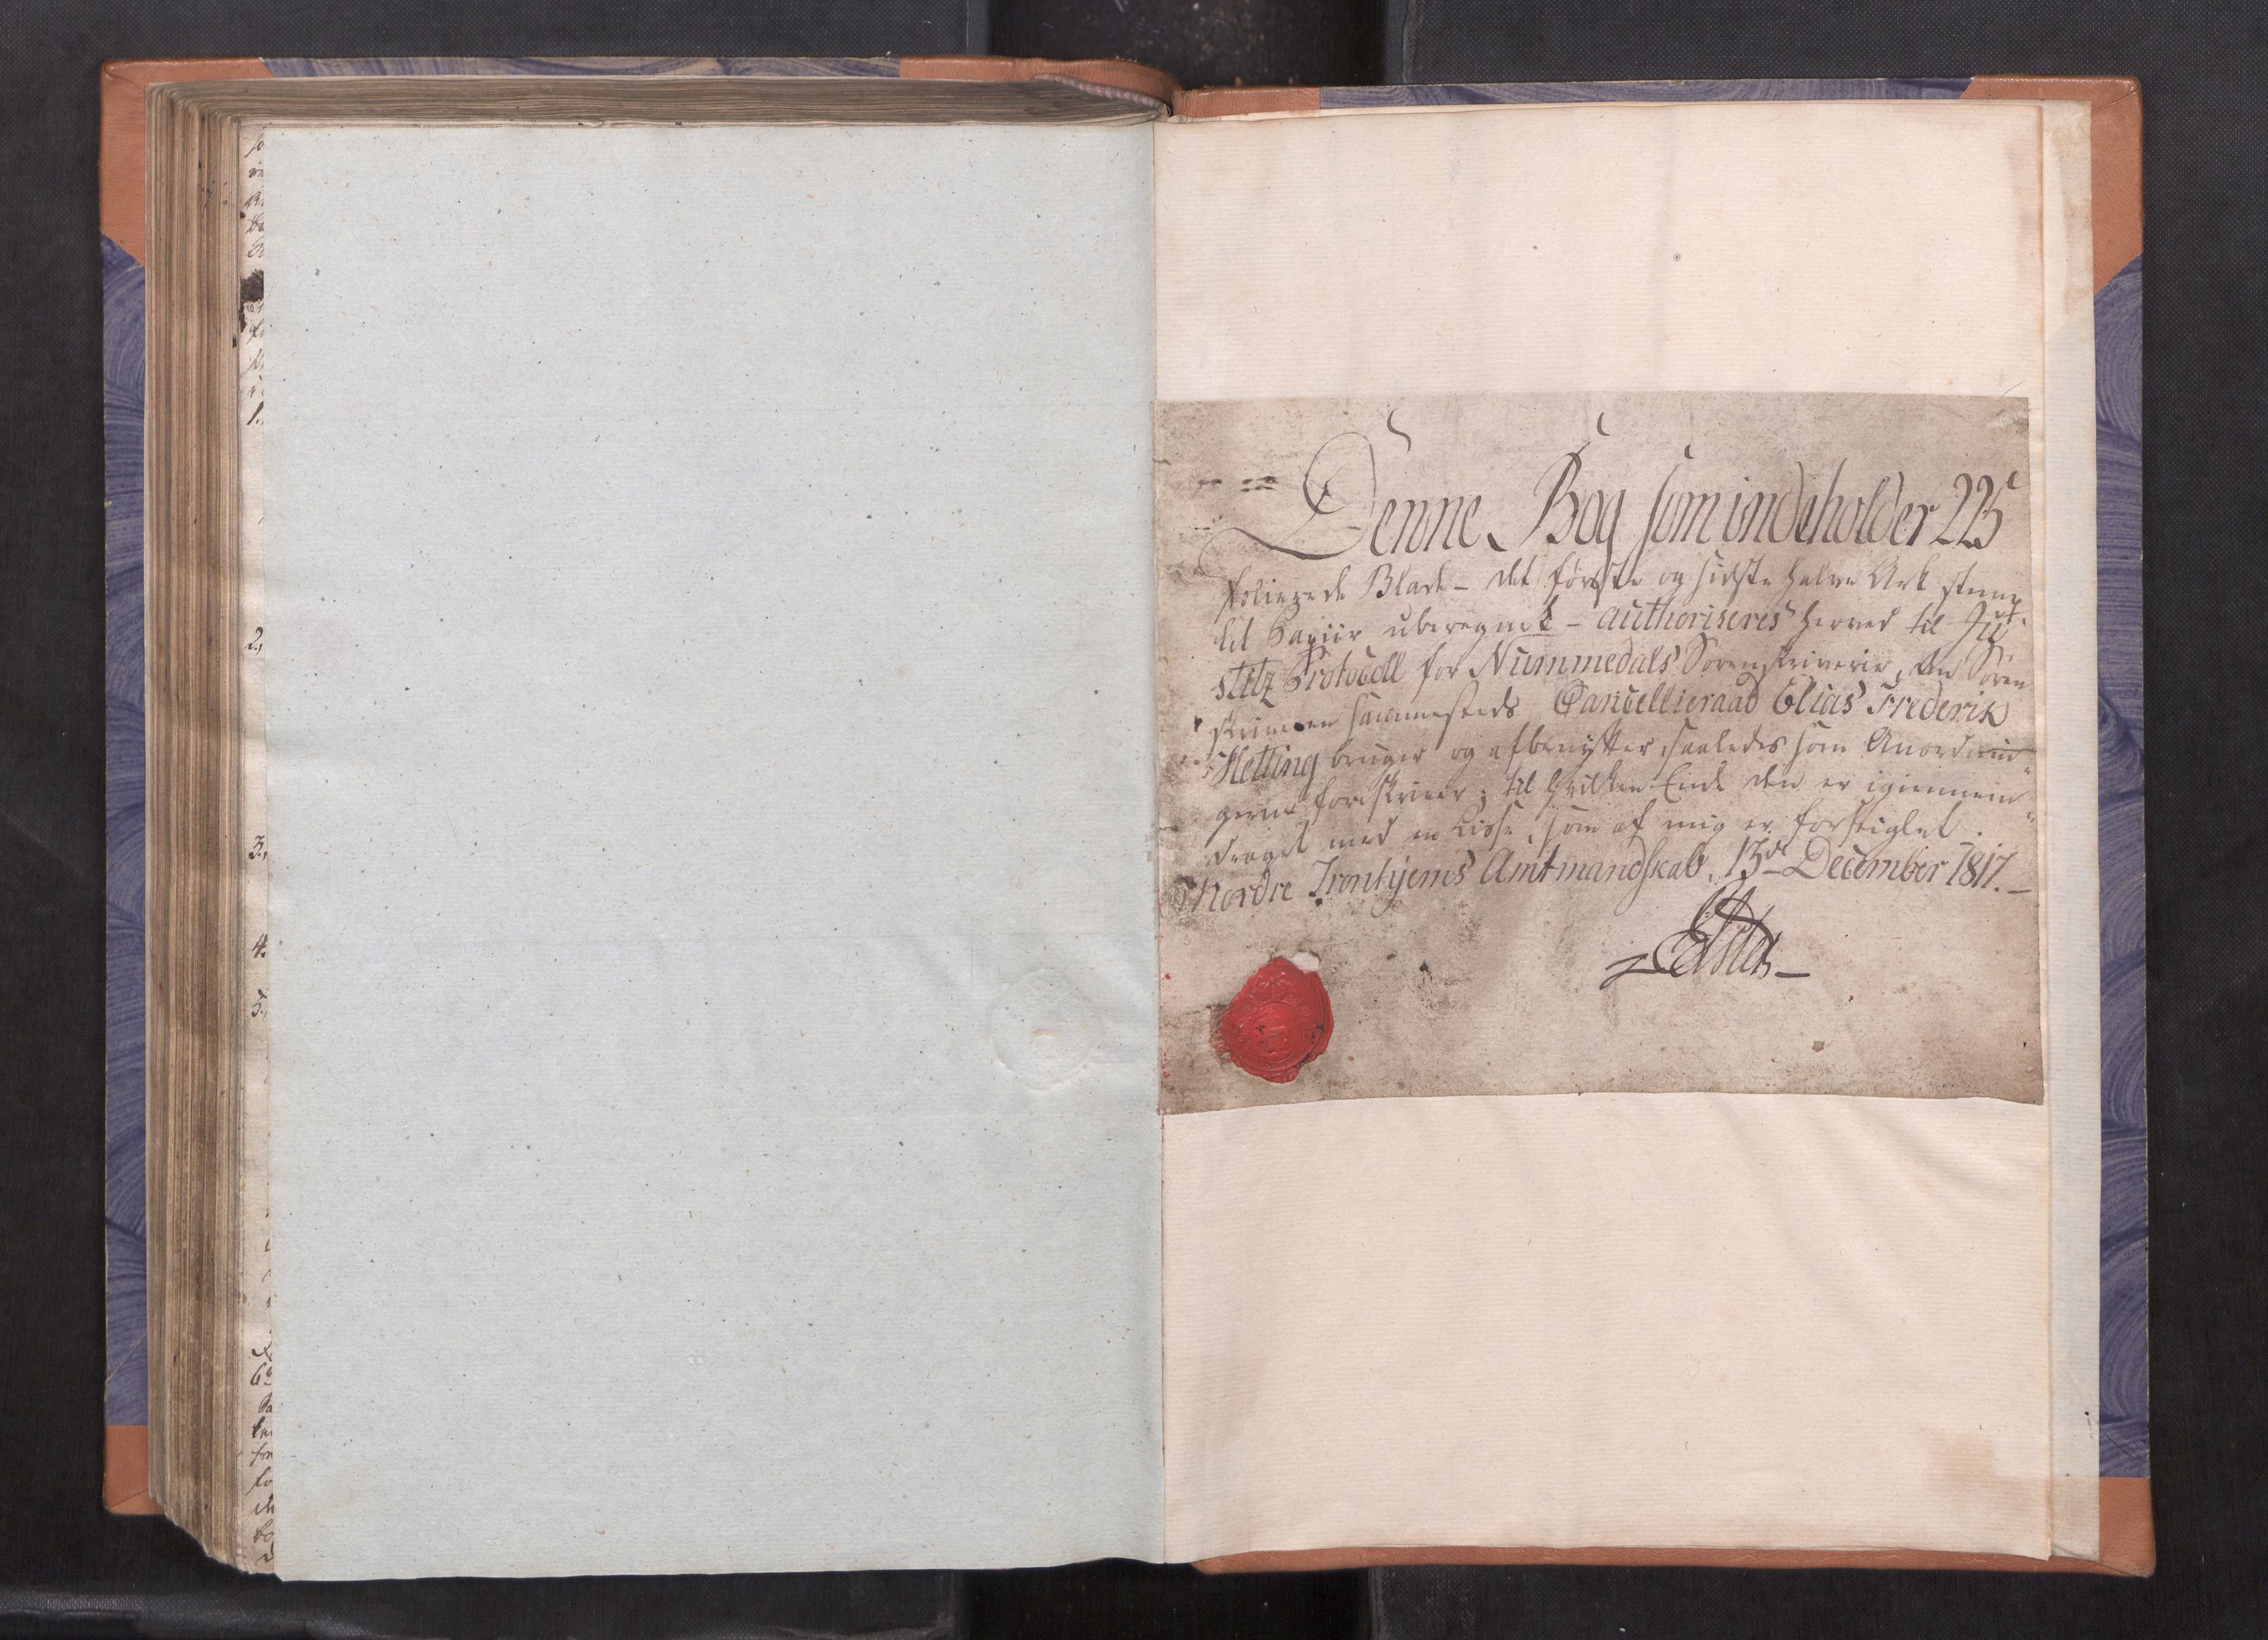 Denne Bog som indeholder 225
folierede Blade - det første og sidste halve Ark stemp-
let Papiir uberegnet - authoriseres herved til Ju-
stitz Protocoll for Nummedals Sorenskriverie, den Soren
skriveren sammesteds Cancellieraad Elias Frederik
Hetting bruger og afbenytter, saaledes som Anordnin"
gerne foreskriver; til hvilken Ende den er igiennem"
dragen med en Lisse, som af mig er forseiglet.
Nordre Trontyems Amtmandskab, 13de December 1817.-
1.
2.,
3.,
4.
5.,